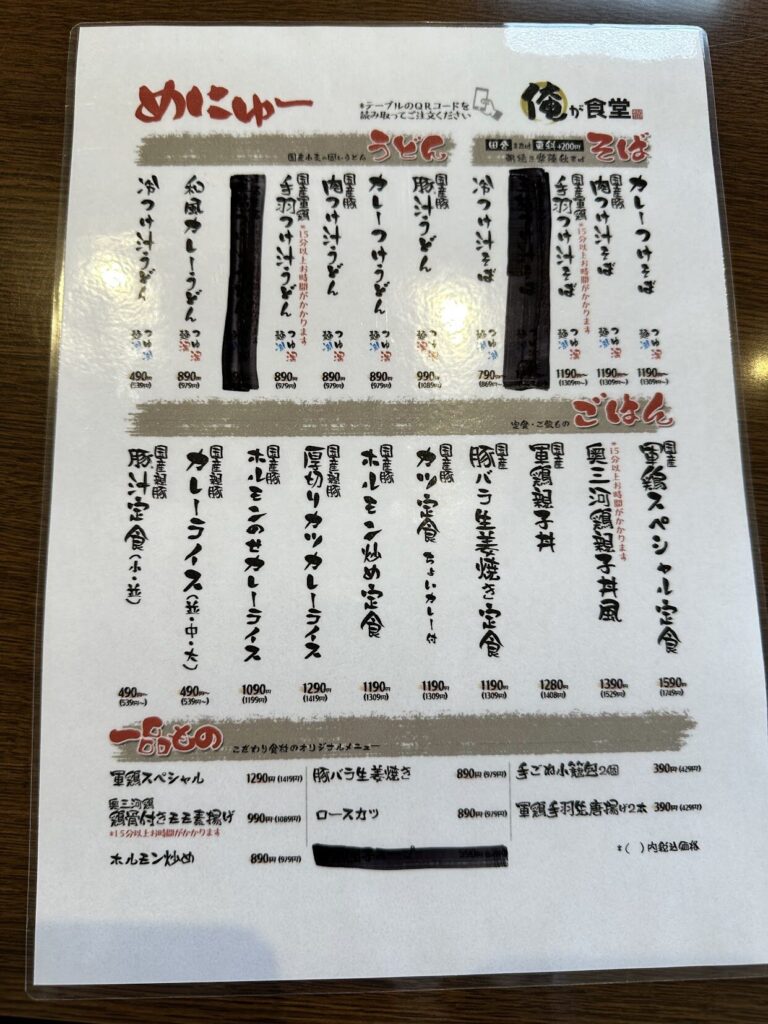 めにゅー
*テーブルのQRコードを
読み取ってご注文ください
俺が食堂
うどん
国産豚
豚汁うどん
990円
(1089円)
カレーつけうどん
つゆ
890円
(979円)
国産豚
肉つけ汁うどん
つゆ
890円
(979円)
国産軍鶏
手羽つけ汁うどん
*15分以上お時間がかかります
つゆ
890円
(979円)
和風カレーうどん
つゆ
890円
(979円)
冷つけ汁うどん
つゆ
490円
(539円)
そば
+200円
カレーつけそば
つゆ
1190円
(1309円~)
国産豚
肉つけ汁そば
つゆ
1190円
(1309円~)
国産軍鶏
手羽つけ汁そば
*15分以上お時間がかかります
つゆ
1190円
(1309円~)
冷つけ汁そば
790円
(869円~)
ごはん
定食・ご飯もの
国産
軍鶏スペシャル定食
1590円
(1749円)
奥三河鶏親子丼風
*15分以上お時間がかかります
1390円
(1529円)
国産
軍鶏親子丼
1280円
(1408円)
国産
豚バラ生姜焼き定食
1190円
(1309円)
国産豚
カツ定食 ちょいカレー付
1190円
(1309円)
国産豚
ホルモン炒め定食
1190円
(1309円)
国産銘豚
厚切りカツカレーライス
1290円
(1419円)
国産豚
ホルモンのせカレーライス
1090円
(1199円)
国産銘豚
カレーライス(並・中・大)
490円~
(539円~)
国産銘豚
豚汁定食(小・並)
490円~
(539円~)
一品もの
こだわり食材のオリジナルメニュー
軍鶏スペシャル 1290円(1419円)
奥三河鶏
鶏骨付きモモ素揚げ 990円(1089円)
*15分以上お時間がかかります
ホルモン炒め 890円(979円)
豚バラ生姜焼き 890円(979円)
ロースカツ 890円(979円)
手ごね小籠包2個 390円(429円)
軍鶏手羽先唐揚げ2本 390円(429円)
*( )内税込価格